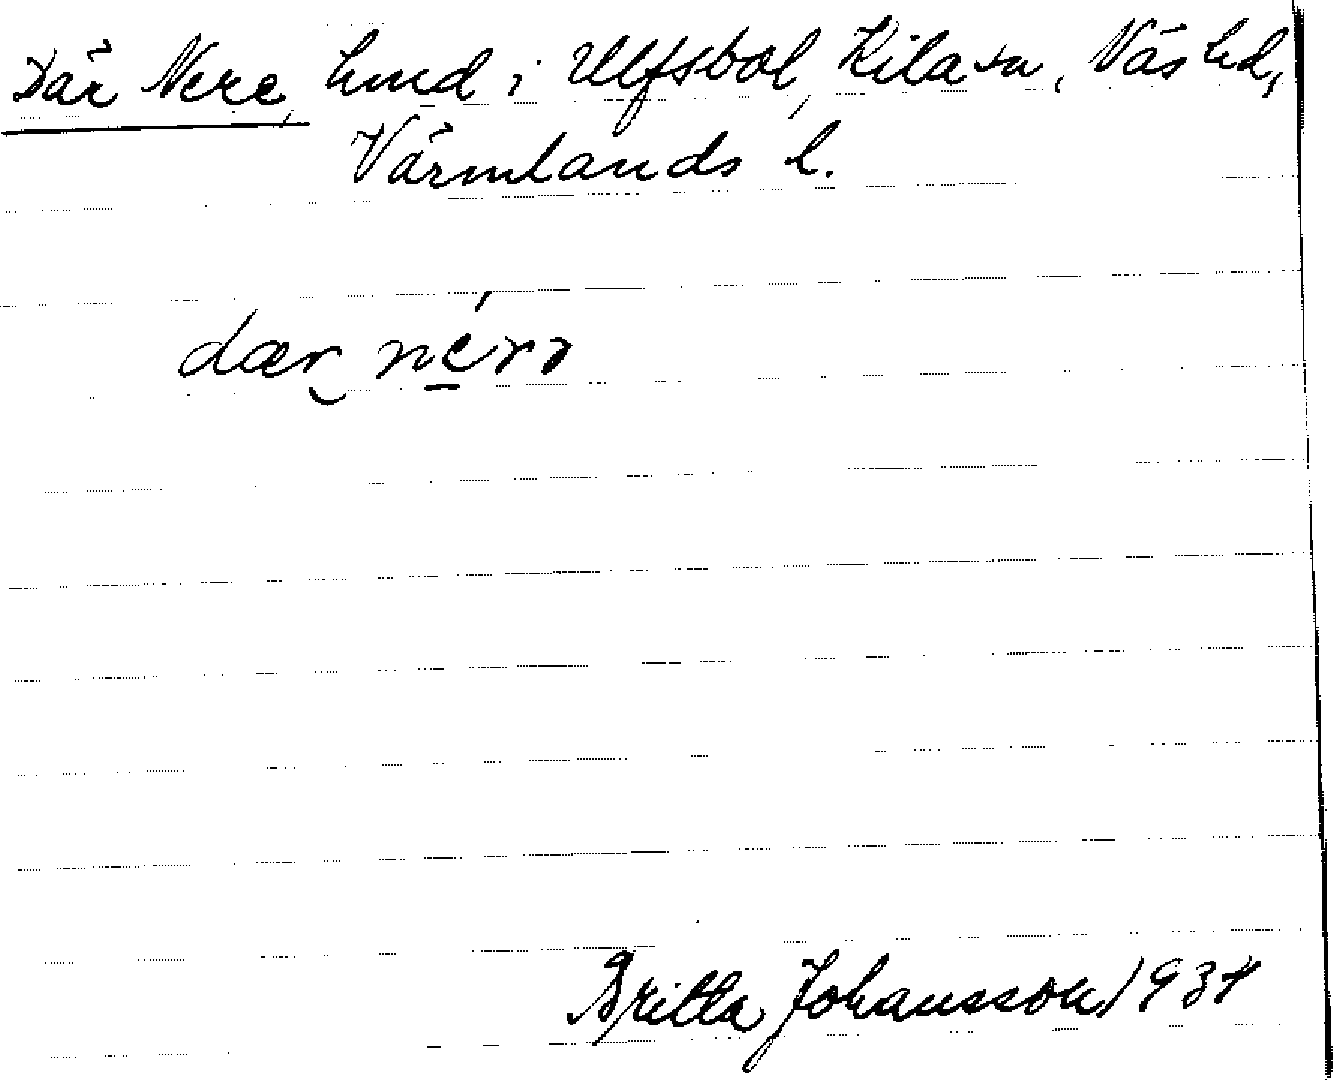 Där Nere, hmd i Ulfsbol, Kila sn, Näs hd,
Värmlands l.
dær né̱rə
Britta Johansson 1934